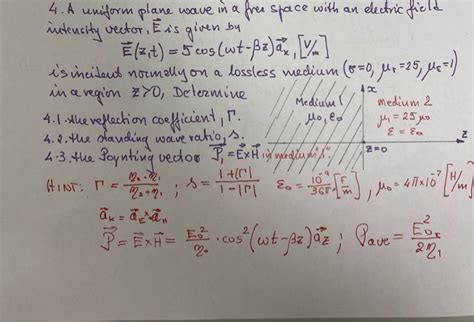 4. A uniform plane wave in a free space with an electric field
intensity vector, E⃗ is given by
E⃗(z,t) = 5 cos(ωt-βz)a⃗ₓ, [V/m]
is incident normally on a lossless medium (σ=0, μᵣ=25, εᵣ=1)
in a region z>0, Determine
4.1. the reflection coefficient, Γ.
4.2. the standing wave ratio, s.
4.3. the Poynting vector P⃗₁ = E⃗×H⃗ in medium "1".
Medium 1
μ₀, ε₀
x
medium 2
μ₁ = 25 μ₀
ε = ε₀
z=0
z
HINT: Γ = (η₂-η₁)/(η₂+η₁) ; s = (1+|Γ|)/(1-|Γ|) ε₀ = 10⁻⁹/36π [F/m], μ₀ = 4π×10⁻⁷ [H/m]
a⃗ₖ = a⃗_E × a⃗_H
P⃗ = E⃗×H⃗ = E₀²/η₀ · cos²(ωt-βz)a⃗_z ; P_ave = E₀²/2η₁